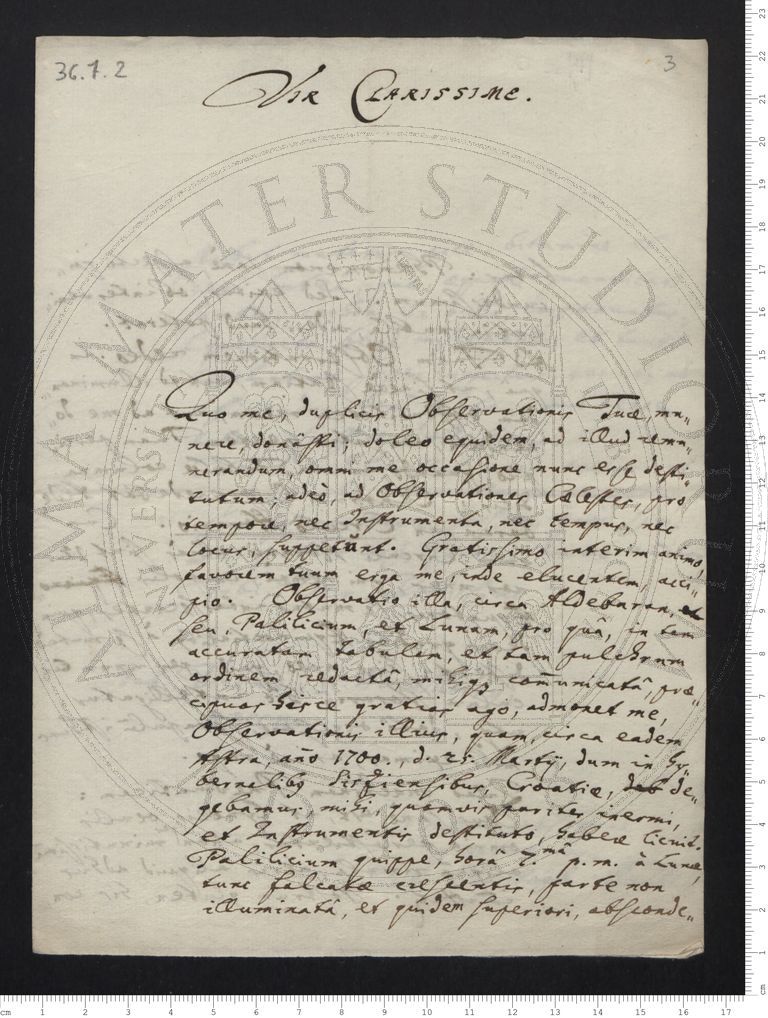 36.7.2
3
Vir Clarissime.
Quo me, duplicis Observationis Tuæ mu„
nere, donâsti; doleo equidem, ad illud remu„
nerandum, omni me occasione nunc esse desti„
tutum; adeò, ad Observationes Cælestes, pro
tempore, nec Instrumenta, nec tempus, nec
locus, suppetunt. Gratissimo interim animo,
favorem tuum erga me, inde elucentem, acci„
pio. Observatio illa, circa Aldebaran,
seu, Palilicium, et Lunam, pro quâ, in tam
accuratam tabulam, et tam pulchrum
ordinem redactâ, mihiqȝ com̄unicatâ, præ„
cipuas hasce gratias ago, admonet me,
Observationis illius, quam, circa eadem
Astra, año 1700., d. 25. Martÿ, dum in hÿ„
bernalibȝ Sisziensibus, Croatiæ, de„
gebamus mihi, quamvis pariter inermi,
et Instrumentis destituto, habere licuit.
Palilicium quippe, horâ 7.mâ p.m. à Lunæ,
tunc falcatæ crescentis, parte non
illuminatâ, et quidem superiori, absconde„
ALMA MATER STUDIORUM